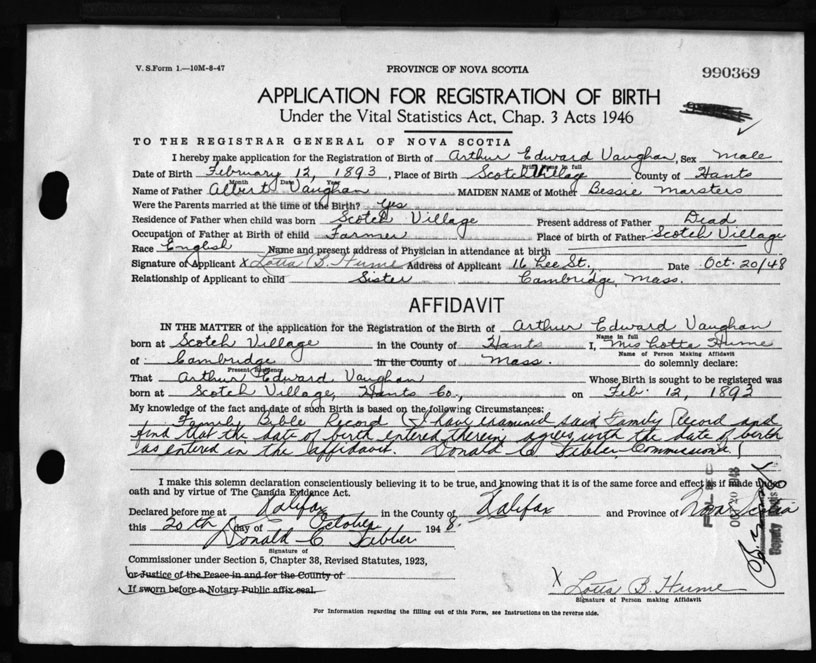 V. S. Form 1.—10M-8-47
PROVINCE OF NOVA SCOTIA
990369
APPLICATION FOR REGISTRATION OF BIRTH
Under the Vital Statistics Act, Chap. 3 Acts 1946
TO THE REGISTRAR GENERAL OF NOVA SCOTIA
I hereby make application for the Registration of Birth of Arthur Edward Vaughan, Sex Male
Print Name in full
Date of Birth February 12, 1893, Place of Birth Scotch Village County of Hants
Month Date Year
Name of Father Albert Vaughan MAIDEN NAME of Mother Bessie Marsters
Were the Parents married at the time of the Birth? Yes
Residence of Father when child was born Scotch Village Present address of Father Dead
Occupation of Father at Birth of child Farmer Place of birth of Father Scotch Village
Race English Name and present address of Physician in attendance at birth
Signature of Applicant X Lotta B. Hume Address of Applicant 16 Lee St., Date Oct. 20/48
Relationship of Applicant to child Sister Cambridge, Mass.
AFFIDAVIT
IN THE MATTER of the application for the Registration of the Birth of Arthur Edward Vaughan
Name in full
born at Scotch Village in the County of Hants I, Mrs Lotta Hume
Name of Person Making Affidavit
of Cambridge in the County of Mass. do solemnly declare:
Present Residence
That Arthur Edward Vaughan Whose Birth is sought to be registered was
born at Scotch Village, Hants Co., on Feb. 12, 1893
My knowledge of the fact and date of such Birth is based on the following Circumstances:
Family Bible Record (I have examined said Family Record and
find that the date of birth entered therein agrees with the date of birth
as entered in the affidavit. Donald C Commissioner)
I make this solemn declaration conscientiously believing it to be true, and knowing that it is of the same force and effect as if made under
oath and by virtue of The Canada Evidence Act.
FILED
OCT 20 1948
Deputy
Declared before me at Halifax in the County of Halifax and Province of Nova Scotia
this 20th day of October 1948.
Donald C
Signature of
Commissioner under Section 5, Chapter 38, Revised Statutes, 1923,
or Justice of the Peace in and for the County of
If sworn before a Notary Public affix seal.
X Lotta B. Hume
Signature of Person making Affidavit
For Information regarding the filling out of this Form, see Instructions on the reverse side.